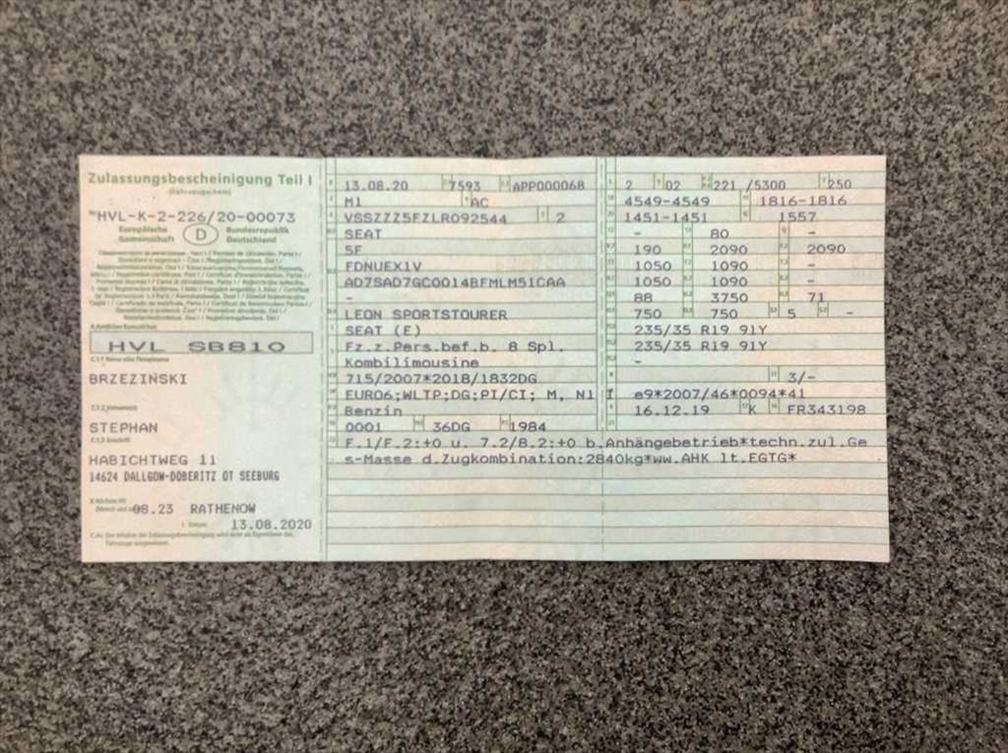 Zulassungsbescheinigung Teil I
(Fahrzeugschein)
HVL-K-2-226/20-00073
Europäische Gemeinschaft D Bundesrepublik Deutschland
HVL SB810
BRZEZIŃSKI
STEPHAN
HABICHTWEG 11
14624 DALLGOW-DÖBERITZ OT SEEBURG
08.23 RATHENOW
13.08.2020
13.08.20 7593 APP000068
M1 AC
VSSZZZ5FZLR092544 2
SEAT
5F
FDNUEX1V
AD7SAD7GC0014BFMLM51CAA
-
LEON SPORTSTOURER
SEAT (E)
Fz.z.Pers.bef.b. 8 Spl.
Kombilimousine
715/2007*2018/1832DG
EURO6;WLTP;DG;PI/CI; M, N1 I
Benzin
0001 36DG 1984
2 02 221 /5300 250
4549-4549 1816-1816
1451-1451 1557
- 80 -
190 2090 2090
1050 1090 -
1050 1090 -
88 3750 71
750 750 5 -
235/35 R19 91Y
235/35 R19 91Y
-
3/-
e9*2007/46*0094*41
16.12.19 K FR343198
F.1/F.2:+0 u. 7.2/8.2:+0 b.Anhängebetrieb*techn.zul.Ge
s-Masse d.Zugkombination:2840kg*ww.AHK lt.EGTG*